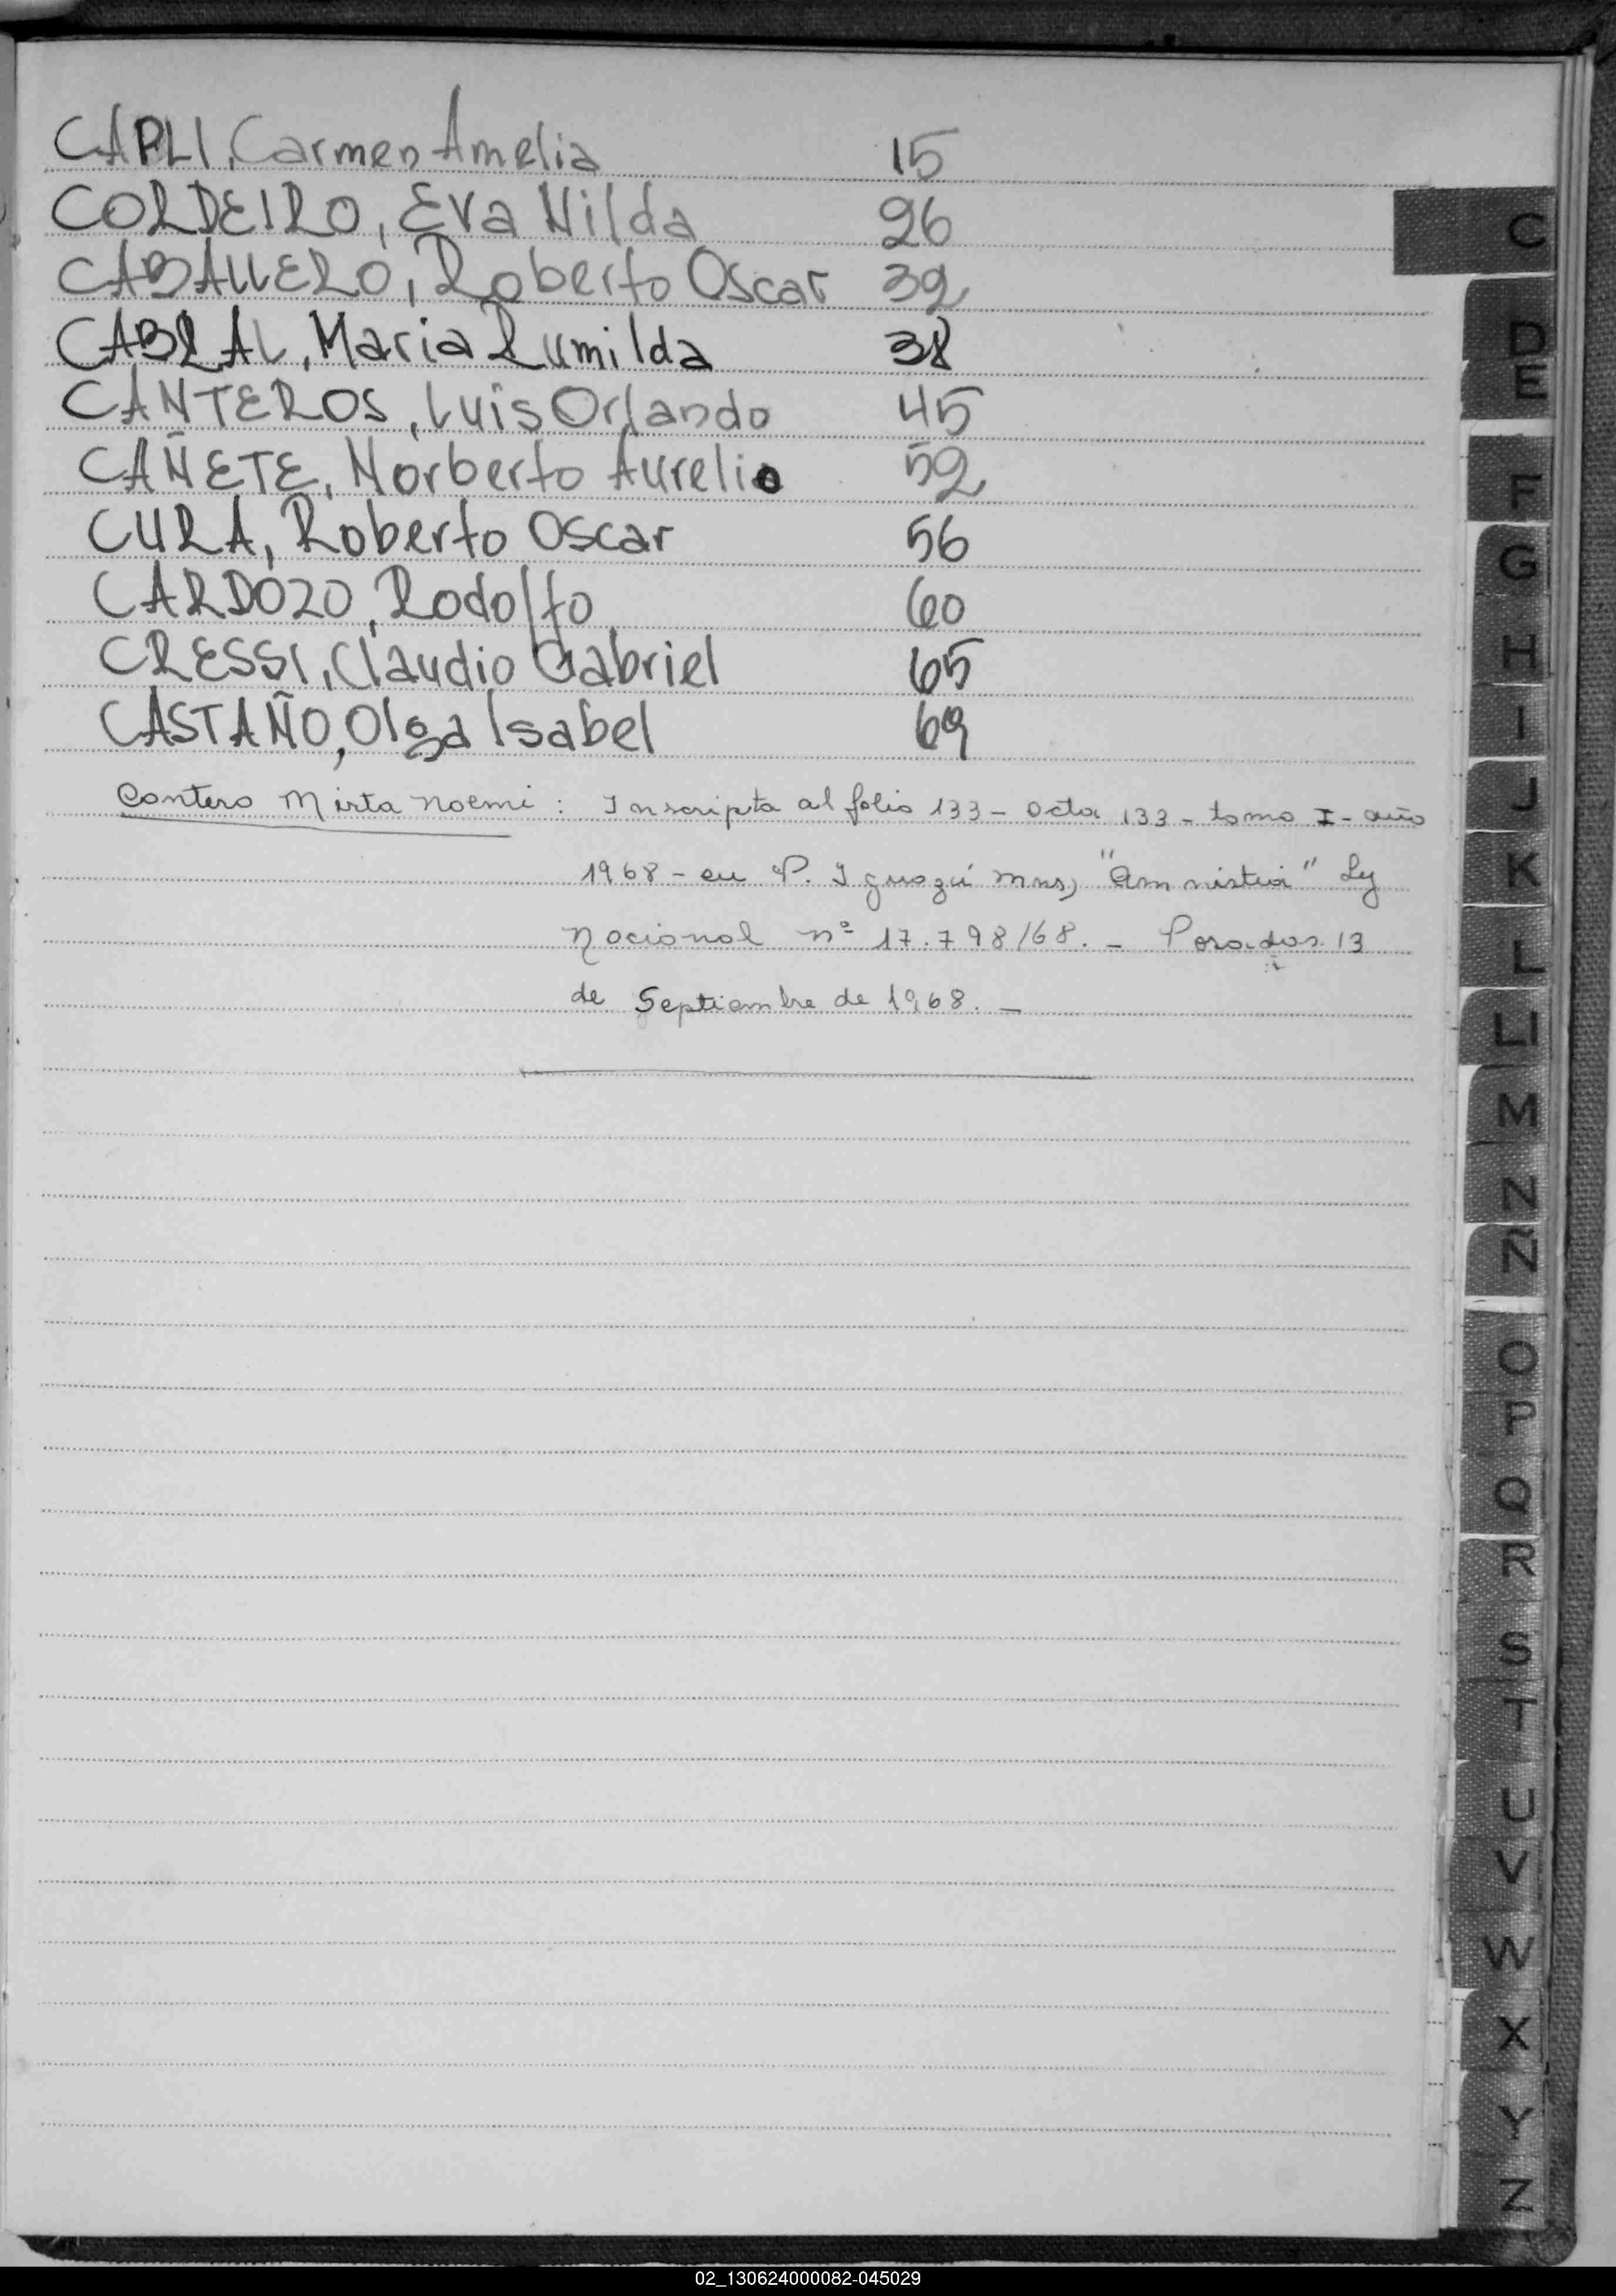 CAPLI, Carmen Amelia 15
CORDEIRO, Eva Nilda 26
CABALLERO, Roberto Oscar 32
CABRAL, Maria Rumilda 38
CANTEROS, Luis Orlando 45
CAÑETE, Norberto Aurelio 52
CURA, Roberto Oscar 56
CARDOZO, Rodolfo 60
CRESSI, Claudio Gabriel 65
CASTAÑO, Olga Isabel 69
Contero Mirta Noemi : Inscripta al folio 133 - acta 133 - tomo I - año
1968 - en P. Iguazú Mns) "Amnistia" Ley
Nacional nº 17.798/68. - Posadas 13
de Septiembre de 1968. -
C
D
E
F
G
H
I
J
K
L
LL
M
N
Ñ
O
P
Q
R
S
T
U
V
W
X
Y
Z
02_130624000082-045029